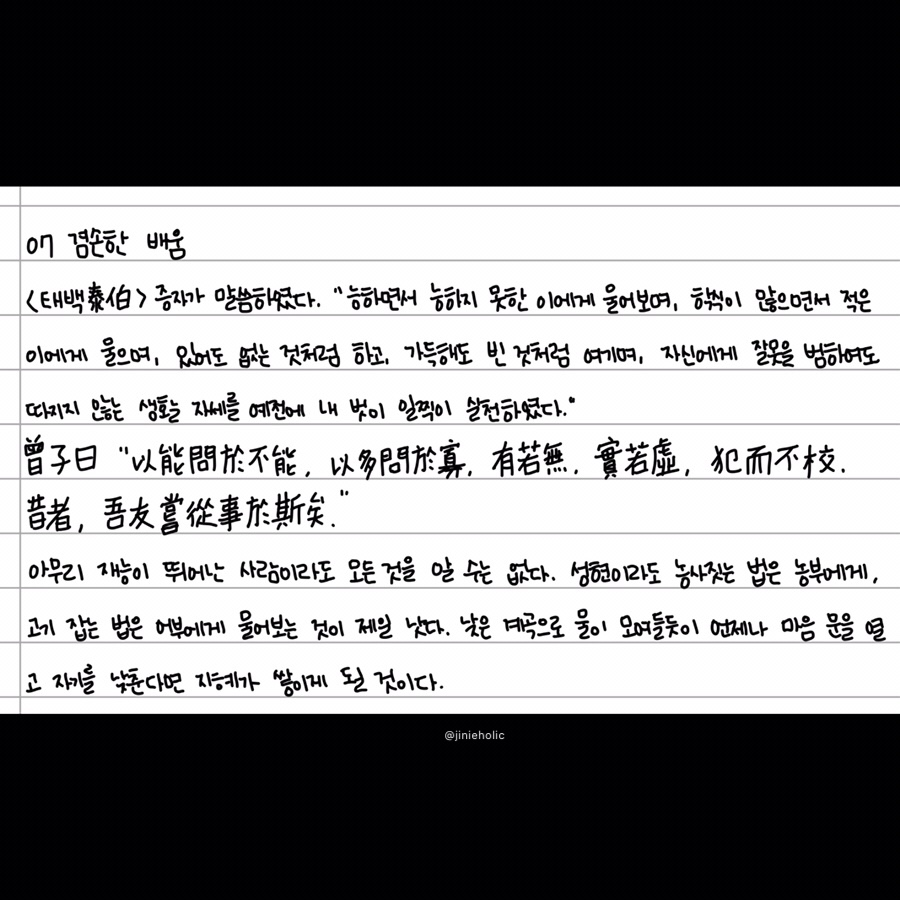 07 겸손한 배움
<태백泰伯> 증자가 말씀하였다. "능하면서 능하지 못한 이에게 물어보며, 학식이 많으면서 적은
이에게 물으며, 있어도 없는 것처럼 하고, 가득해도 빈 것처럼 여기며, 자신에게 잘못을 범하여도
따지지 않는 생활 자세를 예전에 내 벗이 일찍이 실천하였다."
曾子曰 "以能問於不能, 以多問於寡, 有若無, 實若虛, 犯而不校.
昔者, 吾友嘗從事於斯矣."
아무리 재능이 뛰어난 사람이라도 모든 것을 알 수는 없다. 성현이라도 농사짓는 법은 농부에게,
고기 잡는 법은 어부에게 물어보는 것이 제일 낫다. 낮은 계곡으로 물이 모여들듯이 언제나 마음 문을 열
고 자기를 낮춘다면 지혜가 쌓이게 될 것이다.
@jinieholic